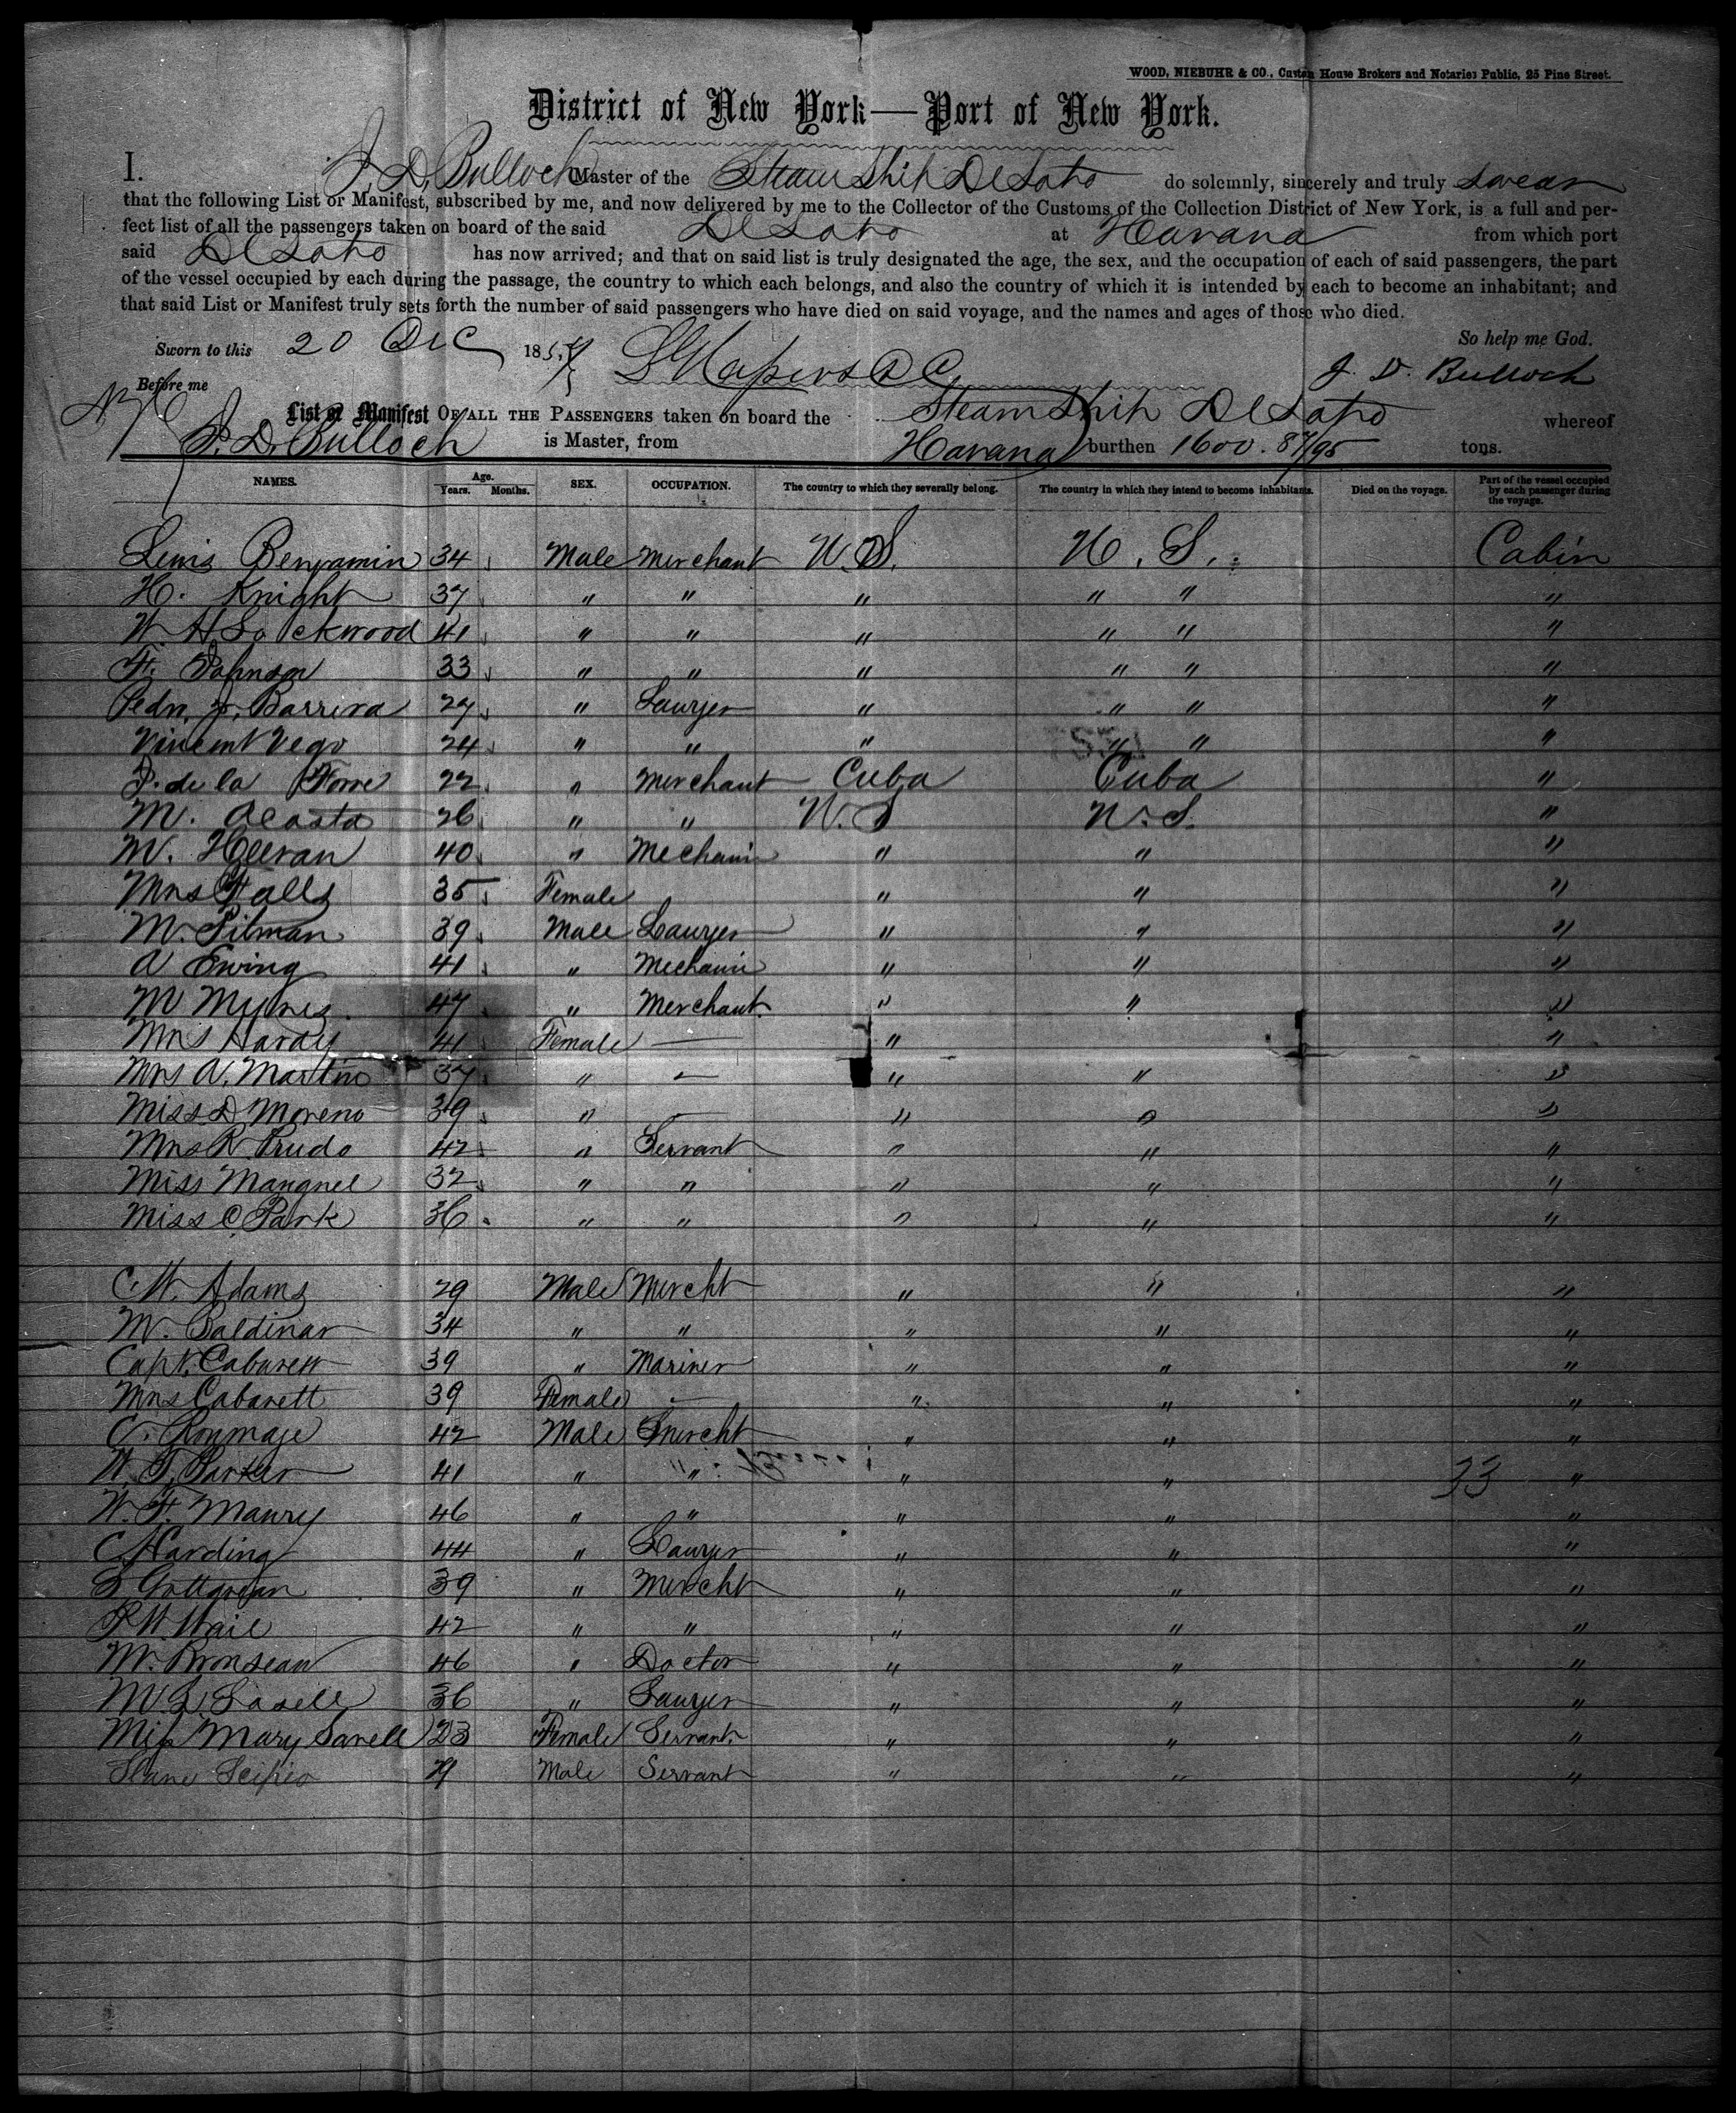 WOOD, NIEBUHR & CO., Custom House Brokers and Notaries Public, 25 Pine Street.
District of New York—Port of New York.
I. J. D. Bulloch Master of the Steam Ship De Soto do solemnly, sincerely and truly swear
that the following List or Manifest, subscribed by me, and now delivered by me to the Collector of the Customs of the Collection District of New York, is a full and per-
fect list of all the passengers taken on board of the said De Soto at Havana from which port
said De Soto has now arrived; and that on said list is truly designated the age, the sex, and the occupation of each of said passengers, the part
of the vessel occupied by each during the passage, the country to which each belongs, and also the country of which it is intended by each to become an inhabitant; and
that said List or Manifest truly sets forth the number of said passengers who have died on said voyage, and the names and ages of those who died.
So help me God.
Sworn to this 20 Dec 185
Before me J. D. Bulloch
List or Manifest OF ALL THE PASSENGERS taken on board the Steam Ship De Soto whereof
J. D. Bulloch is Master, from Havana burthen 1600. 87/95 tons.
NAMES. Age. Years. Months. SEX. OCCUPATION. The country to which they severally belong. The country in which they intend to become inhabitants. Died on the voyage. Part of the vessel occupied by each passenger during the voyage.
Lewis Benjamin 34 Male Merchant U.S. U.S. Cabin
H. Knight 37 " " " " " "
W H Lockwood 41 " " " " " "
F. Johnson 33 " " " " " "
Pedro J. Barrera 27 " Lawyer " " " "
Vincent Vego 24 " " " " " "
P. de la Torre 22 " Merchant Cuba Cuba "
M. Acosta 26 " " U.S U.S. "
M. Heeran 40 " Mechanic " " "
Mrs Falls 35 Female " " "
M. Pilman 39 Male Lawyer " " "
A Ewing 41 " Mechanic " " "
M 47 " Merchant " " "
Mrs Hardy 41 Female — " "
Mrs A. Martino 37 " — " " "
Miss D Moreno 39 " — " " "
Mrs R Prudo 42 " Servant " " "
Miss Mangnel 32 " " " " "
Miss C. Park 36 " " " " "
C. W. Adams 29 Male Mercht " " "
M. Baldinar 34 " " " " "
Capt. Cabarett 39 " Mariner " " "
Mrs Cabarett 39 Female — " " "
C. 42 Male Mercht " " "
W. T. Parker 41 " " " " 33 "
W. F. Maury 46 " " " " "
C Harding 44 " Lawyer " " "
39 " Mercht " " "
R W. 42 " " " " "
M. Bronseau 46 " Doctor " " "
M. L. Lasell 36 " Lawyer " " "
Miss Mary 23 Female Servant " " "
Scipio 29 Male Servant " " "